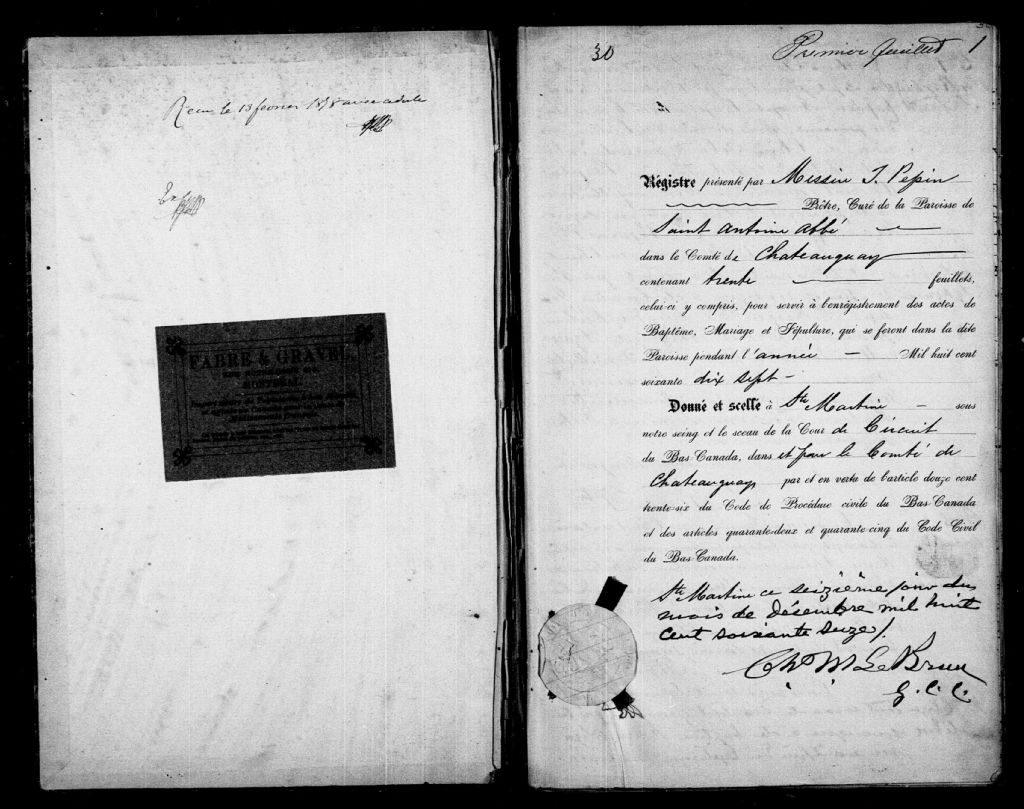 Recu le 13 fevrier 18
FABRE & GRAVEL,
MONTREAL.
30
Premier feuillet 1
Régistre présenté par Messire J. Pepin
Prêtre, Curé de la Paroisse de
Saint Antoine Abbé
dans le Comté de Chateauguay
contenant trente feuillets,
celui-ci y compris, pour servir à l'enrégistrement des actes de
Baptême, Mariage et Sépulture, qui se feront dans la dite
Paroisse pendant l'année — Mil huit cent
soixante dix sept —
Donné et scellé à Ste Martine — sous
notre seing et le sceau de la Cour de Circuit
du Bas-Canada, dans et pour le Comté de
Chateauguay par et en vertu de l'article douze cent
trente-six du Code de Procédure civile du Bas-Canada
et des articles quarante-deux et quarante-cinq du Code Civil
du Bas-Canada.
Ste Martine ce seizième jour du
mois de désembre mil huit
cent soixante seize /.
Chs M LeBrun
G. C. C.